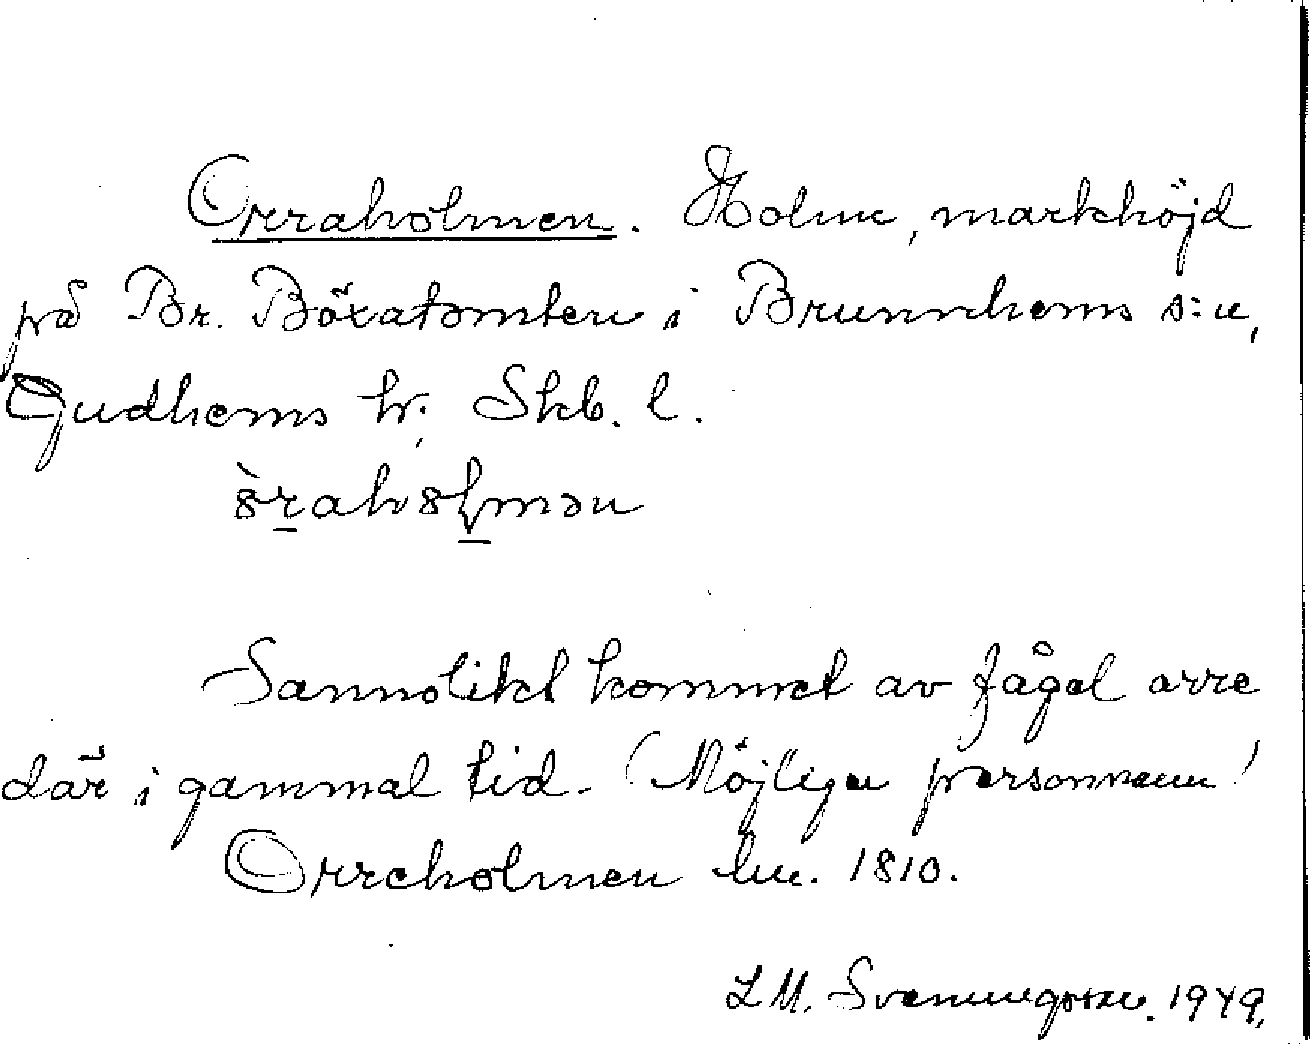 Orraholmen. Holme, markhöjd
på Br. Böxatomten i Brunnhems s:n,
Gudhems hr, Skb. l.
Sannolikt kommet av fågel orre
där i gammal tid. (Möjligen personnamn)
Orreholmen lm. 1810.
L M. Svenungsson. 1949.